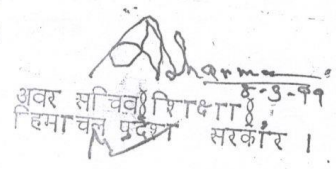 Sharma
8-3-99
अवर सचिव(शिक्षा)
हिमाचल प्रदेश सरकार ।